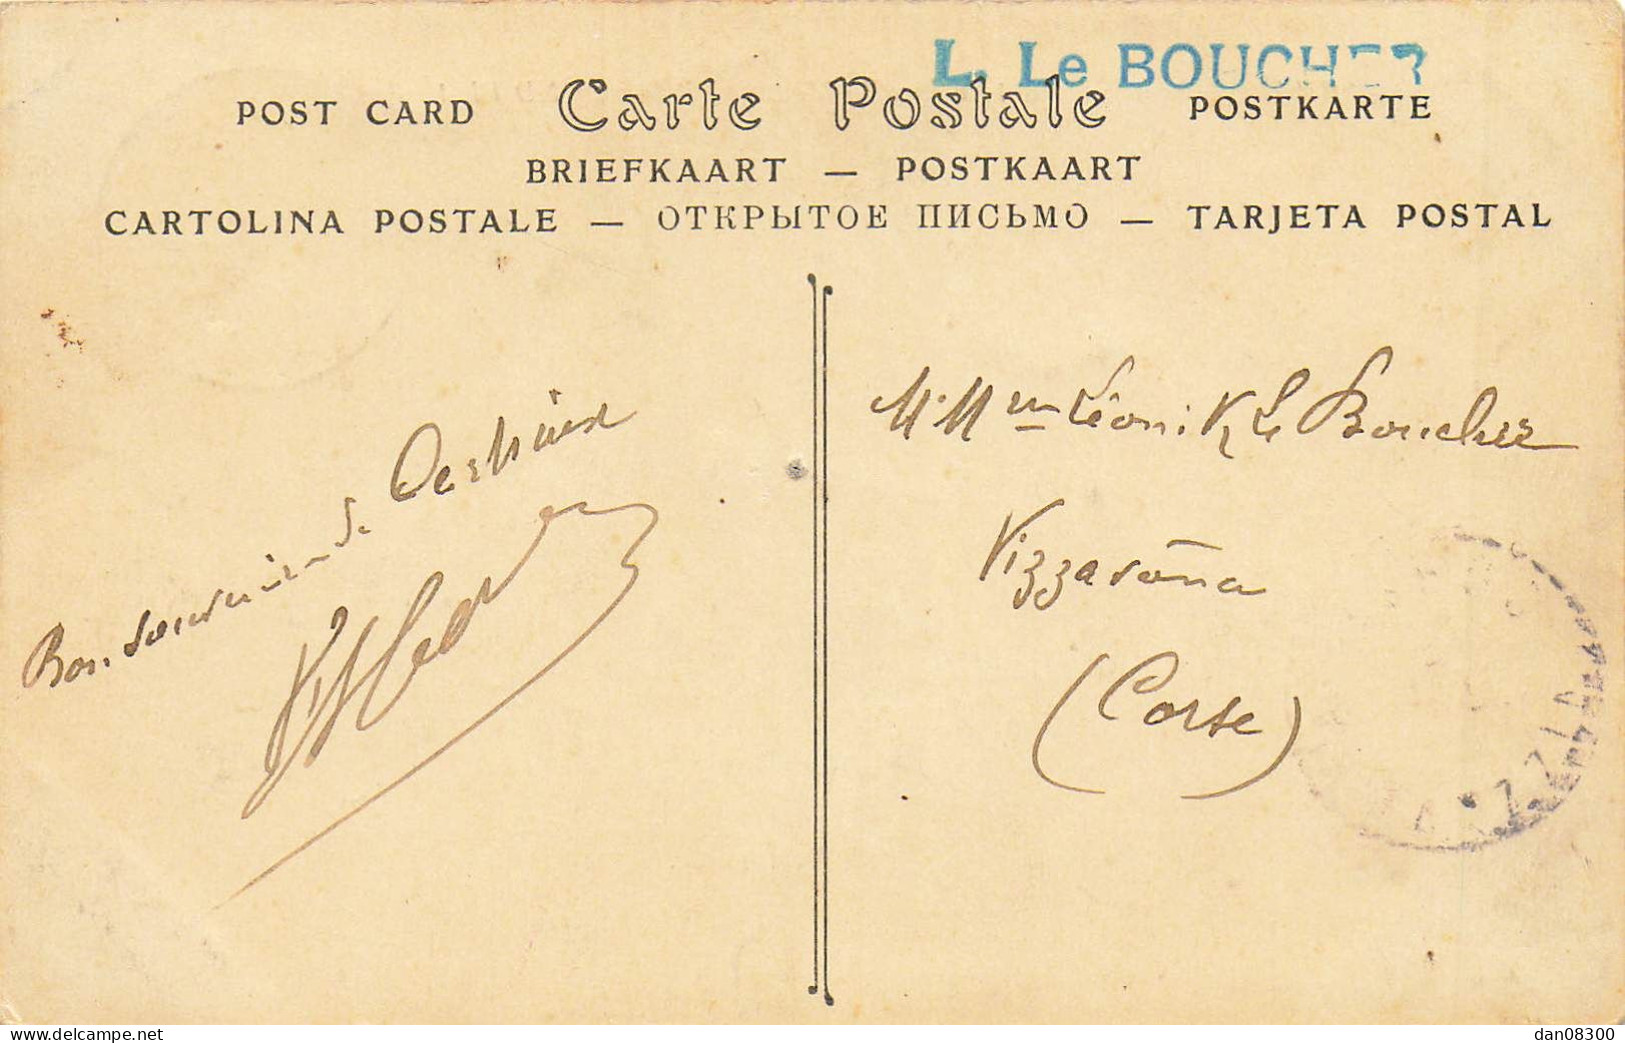 L. Le BOUCHER
POST CARD Carte Postale POSTKARTE
BRIEFKAART — POSTKAART
CARTOLINA POSTALE — ОТКРЫТОЕ ПИСЬМО — TARJETA POSTAL
Bon souvenir de
M. Mme Léoni Le Boucher
Vizzavona
(Corse)
VIZZA
delcampe.net
dan08300